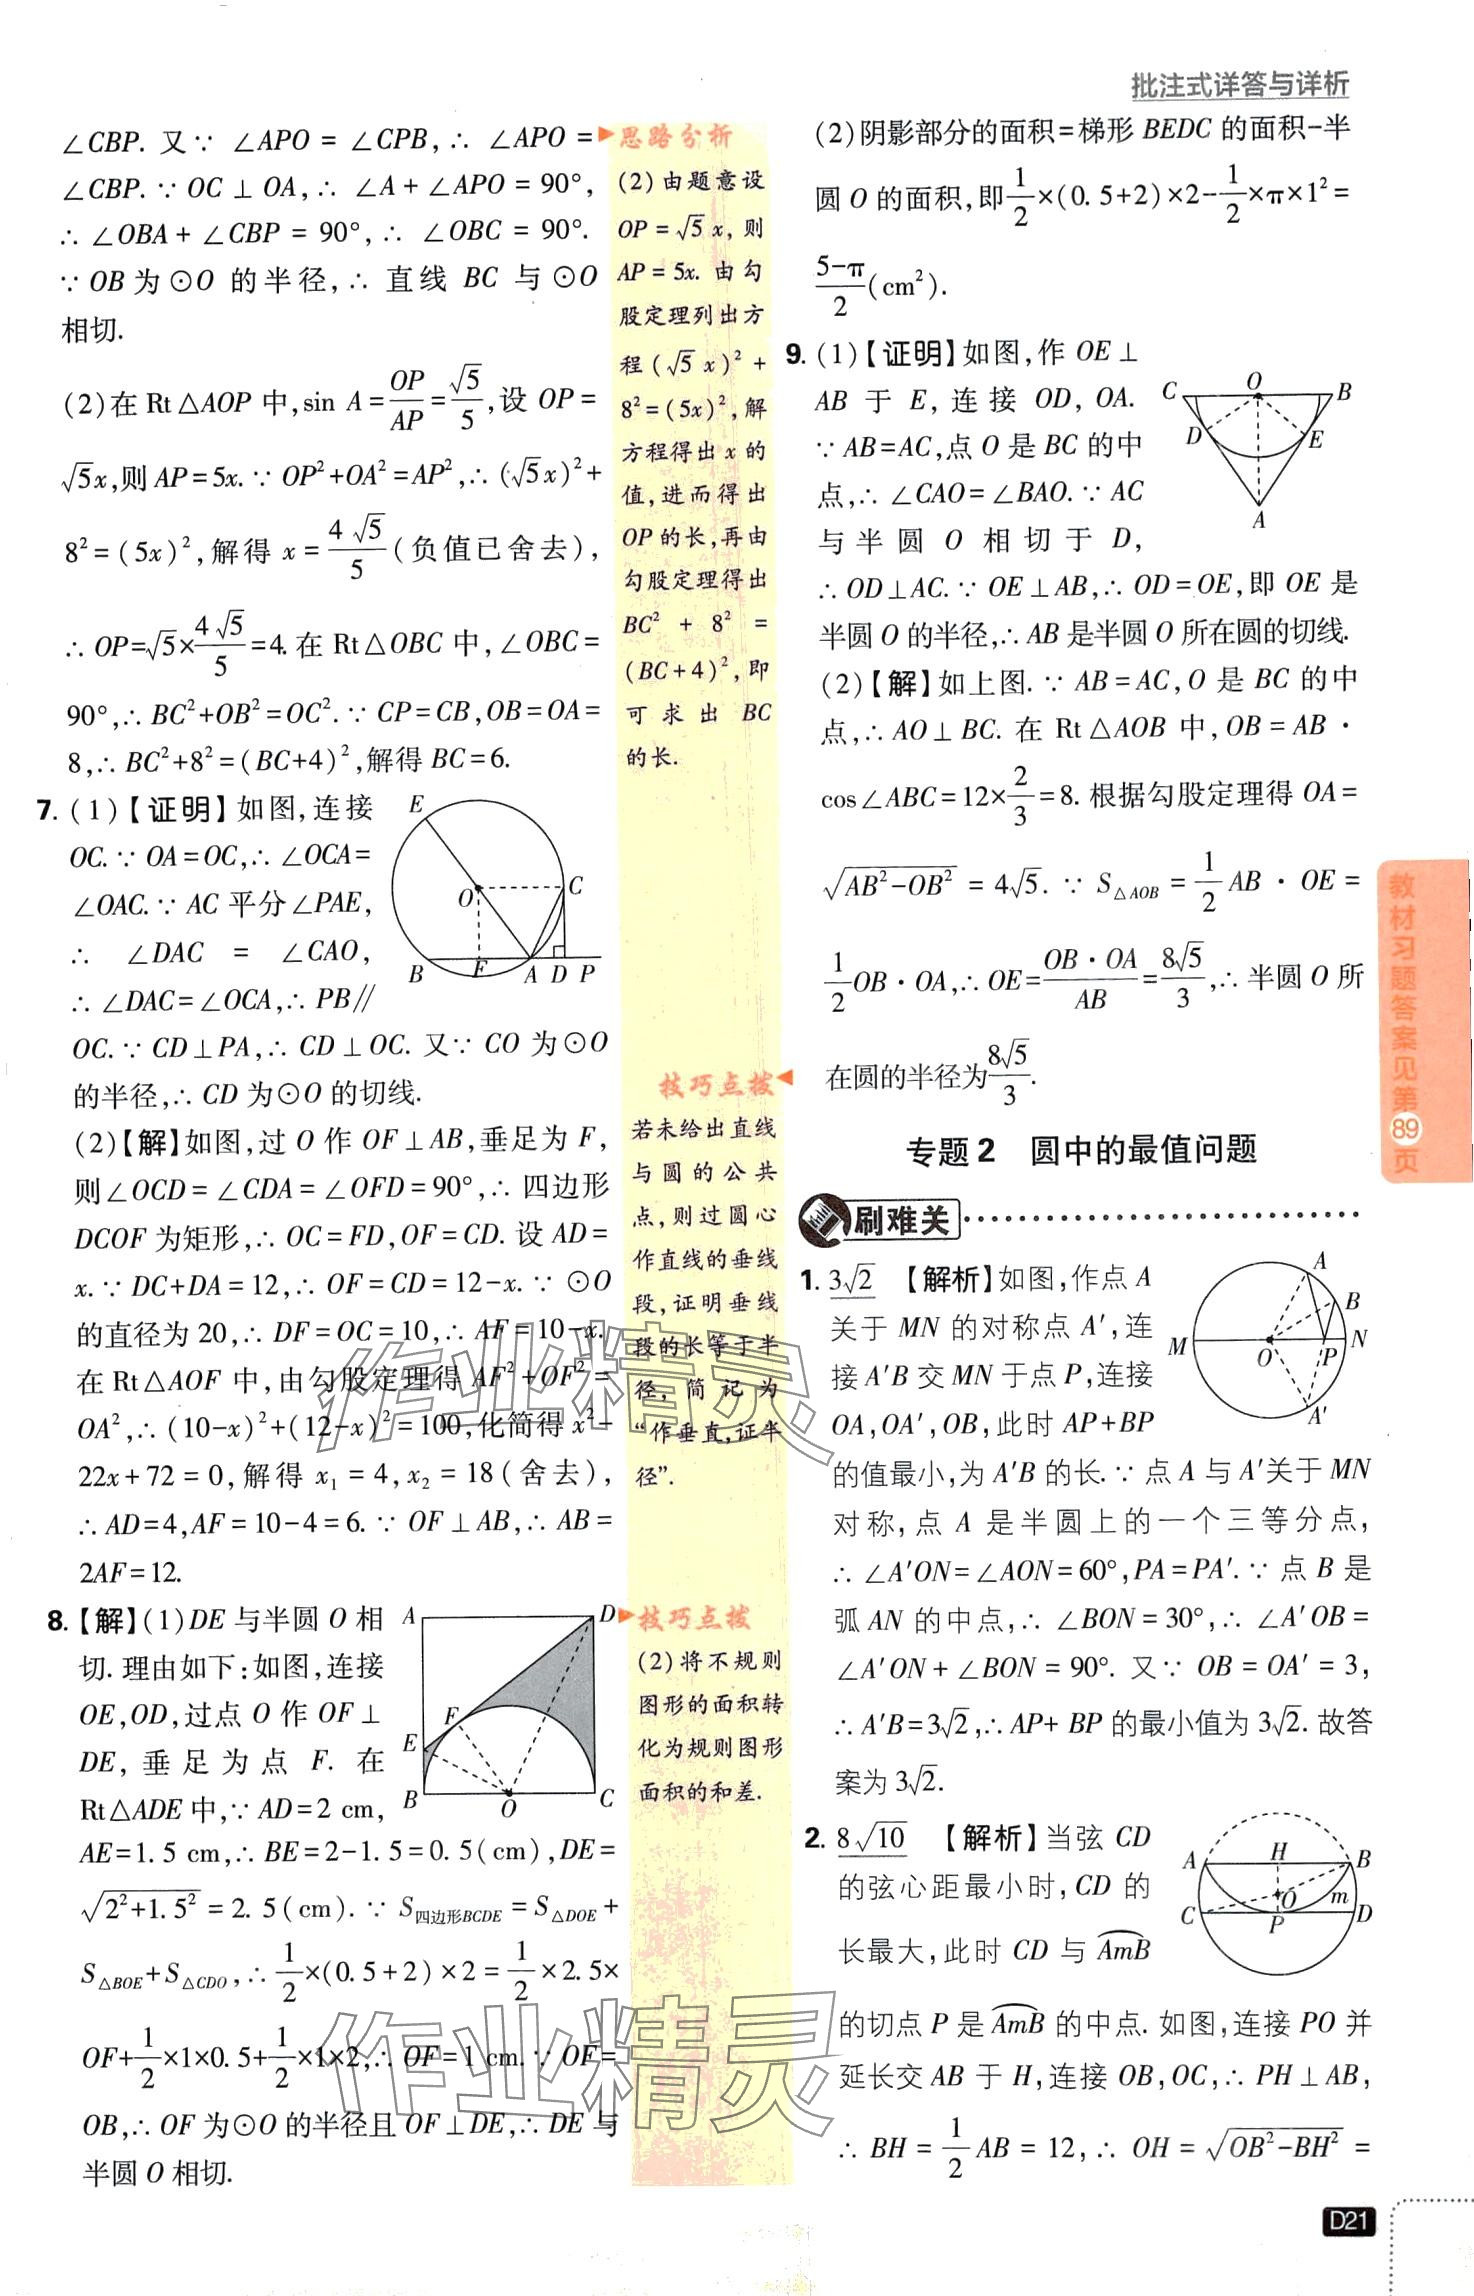 批注式详答与详析
∠CBP. 又∵ ∠APO = ∠CPB, ∴ ∠APO =
∠CBP. ∵ OC⊥OA, ∴ ∠A+∠APO = 90°,
∴ ∠OBA+∠CBP = 90°, ∴ ∠OBC = 90°.
∵ OB为⊙O 的半径, ∴ 直线 BC 与⊙O
相切.
(2)在 Rt△AOP 中, sin A=OP/AP=√5/5, 设 OP=
√5x, 则 AP=5x. ∵ OP²+OA²=AP², ∴ (√5x)²+
8²=(5x)², 解得 x=4√5/5(负值已舍去),
∴ OP=√5×4√5/5=4. 在 Rt△OBC 中, ∠OBC=
90°, ∴ BC²+OB²=OC². ∵ CP=CB, OB=OA=
8, ∴ BC²+8²=(BC+4)², 解得 BC=6.
7. (1)【证明】如图, 连接
OC. ∵ OA=OC, ∴ ∠OCA=
∠OAC. ∵ AC 平分∠PAE,
∴ ∠DAC = ∠CAO,
∴ ∠DAC=∠OCA, ∴ PB∥
OC. ∵ CD⊥PA, ∴ CD⊥OC. 又∵ CO 为⊙O
的半径, ∴ CD 为⊙O 的切线.
E
O
C
B F A D P
(2)【解】如图, 过 O 作 OF⊥AB, 垂足为 F,
则∠OCD=∠CDA=∠OFD=90°, ∴ 四边形
DCOF 为矩形, ∴ OC=FD, OF=CD. 设 AD=
x. ∵ DC+DA=12, ∴ OF=CD=12-x. ∵ ⊙O
的直径为 20, ∴ DF=OC=10, ∴ AF=10-x.
在 Rt△AOF 中, 由勾股定理得 AF²+OF²=
OA², ∴ (10-x)²+(12-x)²=100, 化简得 x²-
22x+72=0, 解得 x₁=4, x₂=18(舍去),
∴ AD=4, AF=10-4=6. ∵ OF⊥AB, ∴ AB=
2AF=12.
8.【解】(1)DE 与半圆 O 相
切. 理由如下:如图, 连接
OE, OD, 过点 O 作 OF⊥
DE, 垂足为点 F. 在
Rt△ADE 中, ∵ AD=2 cm,
AE=1.5 cm, ∴ BE=2-1.5=0.5(cm), DE=
√(2²+1.5²)=2.5(cm). ∵ S四边形BCDE=S△DOE+
S△BOE+S△CDO, ∴ 1/2×(0.5+2)×2=1/2×2.5×
OF+1/2×1×0.5+1/2×1×2, ∴ OF=1 cm. ∵ OF=
OB, ∴ OF 为⊙O 的半径且 OF⊥DE, ∴ DE 与
半圆 O 相切.
A D
F
E
B O C
思路分析
(2)由题意设
OP=√5x, 则
AP=5x. 由勾
股定理列出方
程(√5x)²+
8²=(5x)², 解
方程得出 x 的
值, 进而得出
OP 的长, 再由
勾股定理得出
BC² + 8² =
(BC+4)², 即
可求出 BC
的长.
技巧点拨
若未给出直线
与圆的公共
点, 则过圆心
作直线的垂线
段, 证明垂线
段的长等于半
径, 简记为
“作垂直, 证半
径”.
技巧点拨
(2)将不规则
图形的面积转
化为规则图形
面积的和差.
(2)阴影部分的面积=梯形 BEDC 的面积-半
圆 O 的面积, 即1/2×(0.5+2)×2-1/2×π×1²=
(5-π)/2(cm²).
9. (1)【证明】如图, 作 OE⊥
AB 于 E, 连接 OD, OA.
∵ AB=AC, 点 O 是 BC 的中
点, ∴ ∠CAO=∠BAO. ∵ AC
与半圆 O 相切于 D,
∴ OD⊥AC. ∵ OE⊥AB, ∴ OD=OE, 即 OE 是
半圆 O 的半径, ∴ AB 是半圆 O 所在圆的切线.
C O B
D E
A
(2)【解】如上图. ∵ AB=AC, O 是 BC 的中
点, ∴ AO⊥BC. 在 Rt△AOB 中, OB=AB·
cos∠ABC=12×2/3=8. 根据勾股定理得 OA=
√(AB²-OB²)=4√5. ∵ S△AOB=1/2AB·OE=
1/2OB·OA, ∴ OE=OB·OA/AB=8√5/3, ∴ 半圆 O 所
在圆的半径为8√5/3.
专题2 圆中的最值问题
刷难关
1. 3√2 【解析】如图, 作点 A
关于 MN 的对称点 A′, 连
接 A′B 交 MN 于点 P, 连接
OA, OA′, OB, 此时 AP+BP
的值最小, 为 A′B 的长. ∵ 点 A 与 A′关于 MN
对称, 点 A 是半圆上的一个三等分点,
∴ ∠A′ON=∠AON=60°, PA=PA′. ∵ 点 B 是
弧 AN 的中点, ∴ ∠BON=30°, ∴ ∠A′OB=
∠A′ON+∠BON=90°. 又∵ OB=OA′=3,
∴ A′B=3√2, ∴ AP+BP 的最小值为 3√2. 故答
案为 3√2.
A
B
M O P N
A′
2. 8√10 【解析】当弦 CD
的弦心距最小时, CD 的
长最大, 此时 CD 与 AmB⌒
的切点 P 是 AmB⌒ 的中点. 如图, 连接 PO 并
延长交 AB 于 H, 连接 OB, OC, ∴ PH⊥AB,
∴ BH=1/2AB=12, ∴ OH=√(OB²-BH²)=
A H B
O m
C P D
教材习题答案见第89页
D21
作业精灵
作业精灵